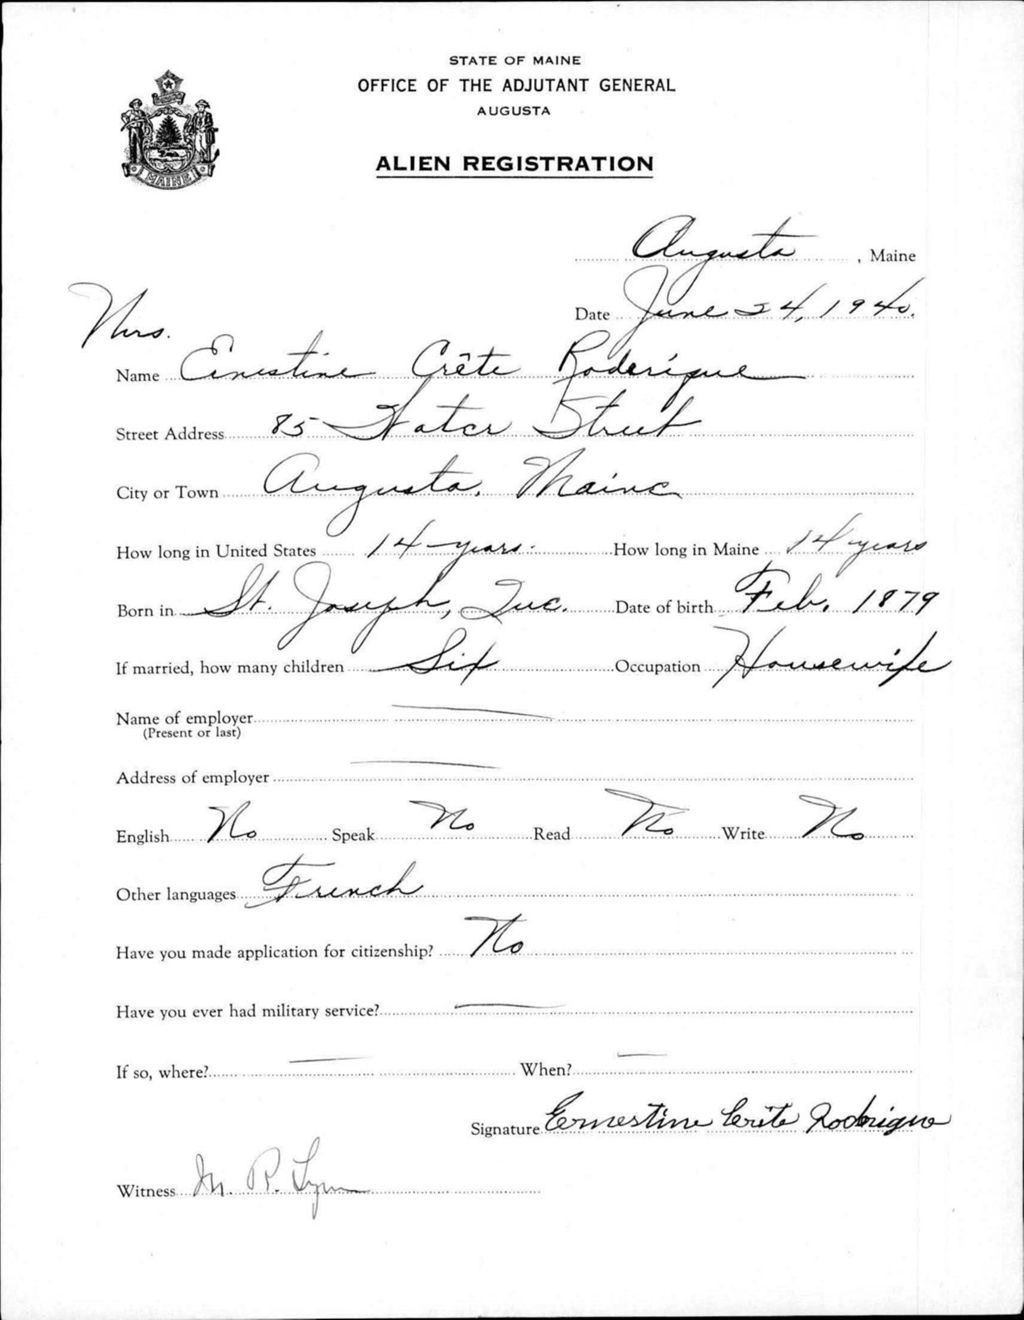 STATE OF MAINE
OFFICE OF THE ADJUTANT GENERAL
AUGUSTA
ALIEN REGISTRATION
MAINE
Augusta, Maine
Date June 24, 1940.
Mrs.
Name Ernestine Crête Roderique
Street Address 85 Water Street
City or Town Augusta, Maine
How long in United States 14 years. How long in Maine 14 years
Born in St. Joseph, Quc. Date of birth Feb. 1879
If married, how many children Six Occupation Housewife
Name of employer
(Present or last)
Address of employer
English No Speak No Read No Write No
Other languages French
Have you made application for citizenship? No
Have you ever had military service?
If so, where? When?
Signature Ernestine Crête Rodrigue
Witness M. R.